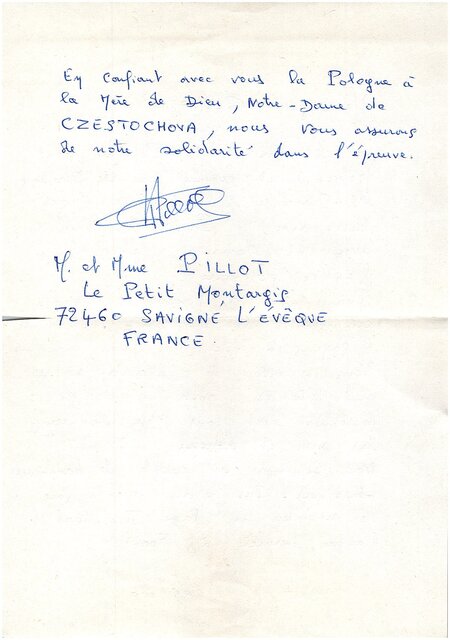 En confiant avec vous la Pologne à
la Mère de Dieu, Notre-Dame de
CZESTOCHOVA, nous vous assurons
de notre solidarité dans l'épreuve.
M. et Mme PILLOT
Le Petit Montargis
72460 SAVIGNE L'ÉVÊQUE
FRANCE.